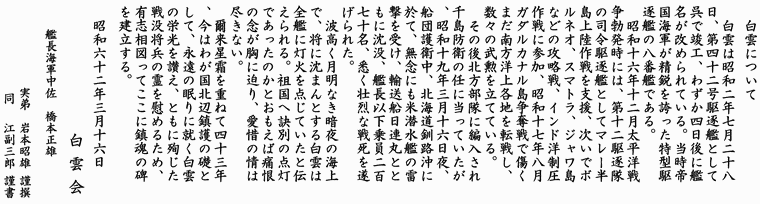 白雲について
白雲は昭和二年七月二十八
日、第四十二号駆逐艦として
呉で竣工、わずか四日後に艦
名が改められている。当時帝
国海軍が精鋭を誇った特型駆
逐艦の八番艦である。
昭和十六年十二月太平洋戦
争勃発時には、第十二駆逐隊
の司令駆逐艦としてマレー半
島上陸作戦を支援、次いでボ
ルネオ、スマトラ、ジャワ島
などの攻略戦、インド洋制圧
作戦に参加、昭和十七年八月
ガダルカナル島争奪戦で傷く
まだ南方洋上各地を転戦し、
数々の武勲を立てている。
その後北方部隊に編入され
千島防衛の任に当っていたが
、昭和十九年三月十六日夜、
船団護衛中、北海道釧路沖に
於て、無念にも米潜水艦の雷
撃を受け、輸送船日連丸とと
もに沈没、艦長以下乗員二百
七十名、悉く壮烈な戦死を遂
げられた。
波高く月明なき暗夜の海上
で、将に沈まんとする白雲は
全艦に灯火を点じていたと伝
えられる。祖国へ訣別の点灯
であったのかとおもえば痛恨
の念が胸に迫り、愛惜の情は
尽きない。
爾来星霜を重ねて四十三年
、今はわが国北辺鎮護の礎と
して、永遠の眠りに就く白雲
の栄光を讃え、ともに殉じた
戦没将兵の霊を慰めるため、
有志相図ってここに鎮魂の碑
を建立する。
昭和六十二年三月十六日
白雲会
艦長海軍中佐 橋本正雄
実弟 岩本昭雄 謹撰
同 江副三郎 謹書